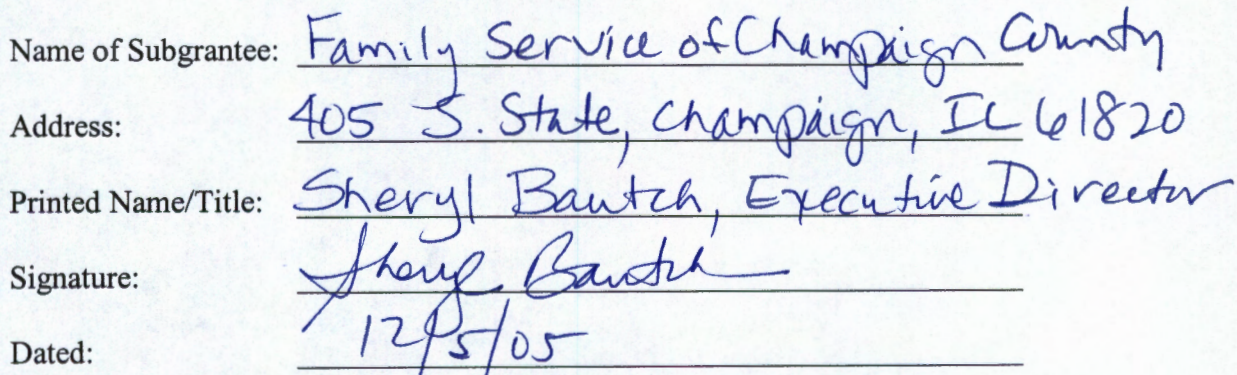 Name of Subgrantee: Family Service of Champaign County
Address: 405 S. State, Champaign, IL 61820
Printed Name/Title: Sheryl Bautch, Executive Director
Signature: Sheryl Bautch
Dated: 12/5/05